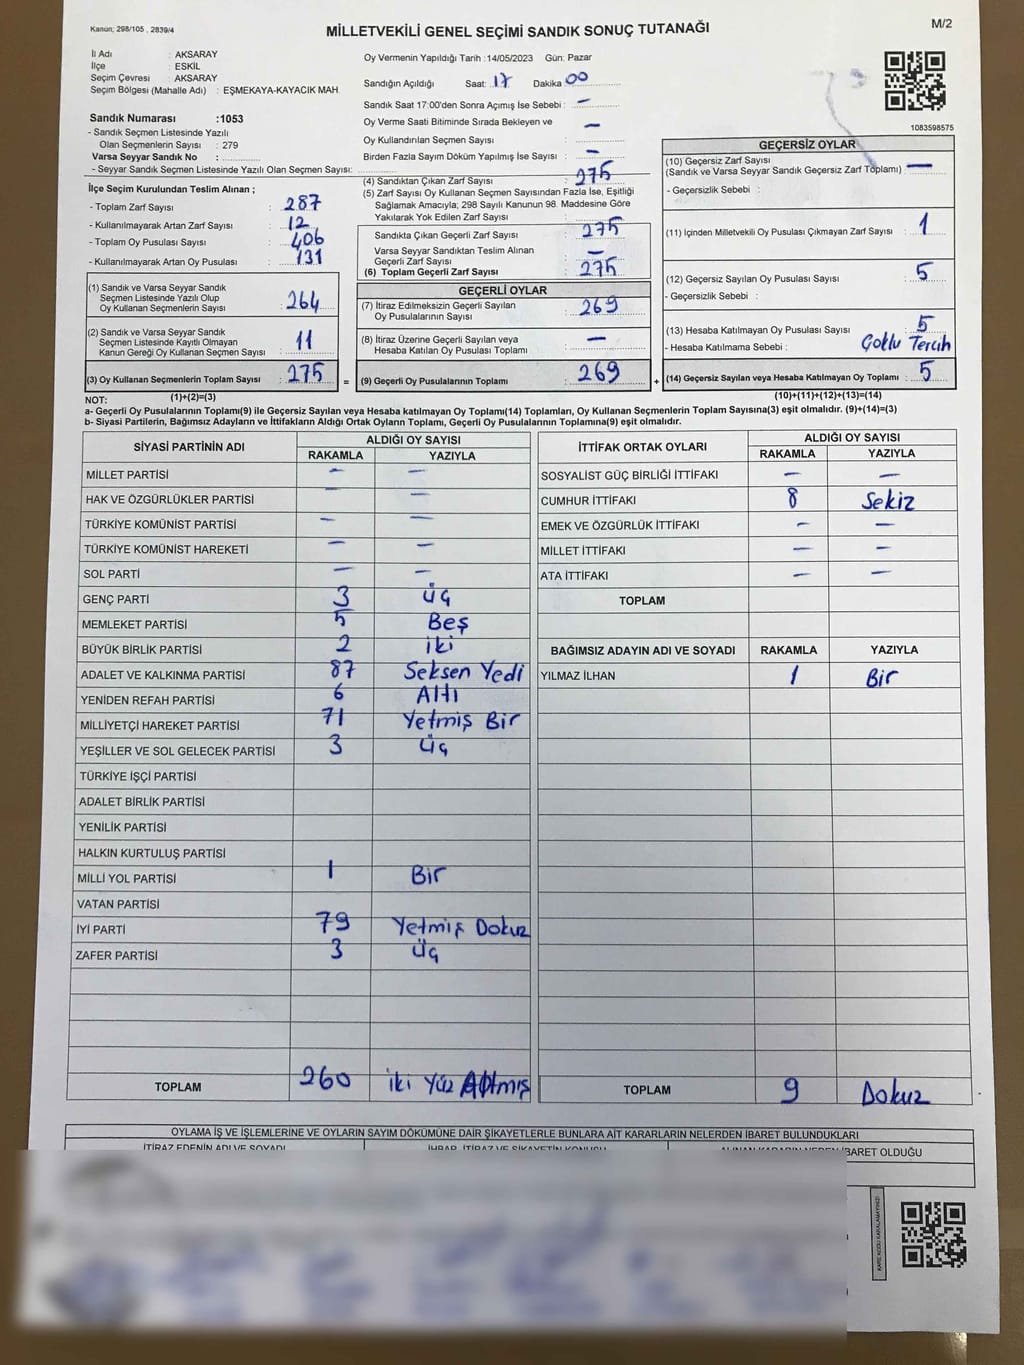 Kanun; 298/105 , 2839/4
MİLLETVEKİLİ GENEL SEÇİMİ SANDIK SONUÇ TUTANAĞI
M/2
İl Adı : AKSARAY
İlçe : ESKİL
Seçim Çevresi : AKSARAY
Seçim Bölgesi (Mahalle Adı) : EŞMEKAYA-KAYACIK MAH.
Sandık Numarası :1053
- Sandık Seçmen Listesinde Yazılı
Olan Seçmenlerin Sayısı : 279
Varsa Seyyar Sandık No :
- Seyyar Sandık Seçmen Listesinde Yazılı Olan Seçmen Sayısı:
Oy Vermenin Yapıldığı Tarih :14/05/2023 Gün: Pazar
Sandığın Açıldığı Saat: 17 Dakika 00
Sandık Saat 17:00'den Sonra Açımış İse Sebebi : —
Oy Verme Saati Bitiminde Sırada Bekleyen ve
Oy Kullandırılan Seçmen Sayısı : —
Birden Fazla Sayım Döküm Yapılmış İse Sayısı : —
1083598575
İlçe Seçim Kurulundan Teslim Alınan ;
- Toplam Zarf Sayısı : 287
- Kullanılmayarak Artan Zarf Sayısı : 12
- Toplam Oy Pusulası Sayısı : 406
- Kullanılmayarak Artan Oy Pusulası : 131
(1) Sandık ve Varsa Seyyar Sandık
Seçmen Listesinde Yazılı Olup
Oy Kullanan Seçmenlerin Sayısı : 264
(2) Sandık ve Varsa Seyyar Sandık
Seçmen Listesinde Kayıtlı Olmayan
Kanun Gereği Oy Kullanan Seçmen Sayısı : 11
(3) Oy Kullanan Seçmenlerin Toplam Sayısı : 275 =
(4) Sandıktan Çıkan Zarf Sayısı : 275
(5) Zarf Sayısı Oy Kullanan Seçmen Sayısından Fazla İse, Eşitliği
Sağlamak Amacıyla; 298 Sayılı Kanunun 98. Maddesine Göre
Yakılarak Yok Edilen Zarf Sayısı :
Sandıkta Çıkan Geçerli Zarf Sayısı : 275
Varsa Seyyar Sandıktan Teslim Alınan
Geçerli Zarf Sayısı : —
(6) Toplam Geçerli Zarf Sayısı : 275
GEÇERLİ OYLAR
(7) İtiraz Edilmeksizin Geçerli Sayılan
Oy Pusulalarının Sayısı : 269
(8) İtiraz Üzerine Geçerli Sayılan veya
Hesaba Katılan Oy Pusulası Toplamı : —
(9) Geçerli Oy Pusulalarının Toplamı : 269 +
GEÇERSİZ OYLAR
(10) Geçersiz Zarf Sayısı
(Sandık ve Varsa Seyyar Sandık Geçersiz Zarf Toplamı) : —
- Geçersizlik Sebebi :
(11) İçinden Milletvekili Oy Pusulası Çıkmayan Zarf Sayısı : 1
(12) Geçersiz Sayılan Oy Pusulası Sayısı : 5
- Geçersizlik Sebebi :
(13) Hesaba Katılmayan Oy Pusulası Sayısı : 5
- Hesaba Katılmama Sebebi : Çoklu Tercih
(14) Geçersiz Sayılan veya Hesaba Katılmayan Oy Toplamı : 5
NOT: (1)+(2)=(3) (10)+(11)+(12)+(13)=(14)
a- Geçerli Oy Pusulalarının Toplamı(9) ile Geçersiz Sayılan veya Hesaba katılmayan Oy Toplamı(14) Toplamları, Oy Kullanan Seçmenlerin Toplam Sayısına(3) eşit olmalıdır. (9)+(14)=(3)
b- Siyasi Partilerin, Bağımsız Adayların ve İttifakların Aldığı Oyların Toplamı, Geçerli Oy Pusulalarının Toplamına(9) eşit olmalıdır.
SİYASİ PARTİNİN ADI ALDIĞI OY SAYISI
RAKAMLA YAZIYLA
MİLLET PARTİSİ — —
HAK VE ÖZGÜRLÜKLER PARTİSİ — —
TÜRKİYE KOMÜNİST PARTİSİ — —
TÜRKİYE KOMÜNİST HAREKETİ — —
SOL PARTİ — —
GENÇ PARTİ 3 üç
MEMLEKET PARTİSİ 5 Beş
BÜYÜK BİRLİK PARTİSİ 2 iki
ADALET VE KALKINMA PARTİSİ 87 Seksen Yedi
YENİDEN REFAH PARTİSİ 6 Altı
MİLLİYETÇİ HAREKET PARTİSİ 71 Yetmiş Bir
YEŞİLLER VE SOL GELECEK PARTİSİ 3 üç
TÜRKİYE İŞÇİ PARTİSİ
ADALET BİRLİK PARTİSİ
YENİLİK PARTİSİ
HALKIN KURTULUŞ PARTİSİ
MİLLİ YOL PARTİSİ 1 Bir
VATAN PARTİSİ
İYİ PARTİ 79 Yetmiş Dokuz
ZAFER PARTİSİ 3 üç
TOPLAM 260 iki Yüz Altmış
İTTİFAK ORTAK OYLARI ALDIĞI OY SAYISI
RAKAMLA YAZIYLA
SOSYALİST GÜÇ BİRLİĞİ İTTİFAKI — —
CUMHUR İTTİFAKI 8 Sekiz
EMEK VE ÖZGÜRLÜK İTTİFAKI — —
MİLLET İTTİFAKI — —
ATA İTTİFAKI — —
TOPLAM
BAĞIMSIZ ADAYIN ADI VE SOYADI RAKAMLA YAZIYLA
YILMAZ İLHAN 1 Bir
TOPLAM 9 Dokuz
OYLAMA İŞ VE İŞLEMLERİNE VE OYLARIN SAYIM DÖKÜMÜNE DAİR ŞİKAYETLERLE BUNLARA AİT KARARLARIN NELERDEN İBARET BULUNDUKLARI
İTİRAZ EDENİN ADI VE SOYADI İHBAR, İTİRAZ VE ŞİKAYETİN KONUSU ALINAN KARARIN NEDEN İBARET OLDUĞU